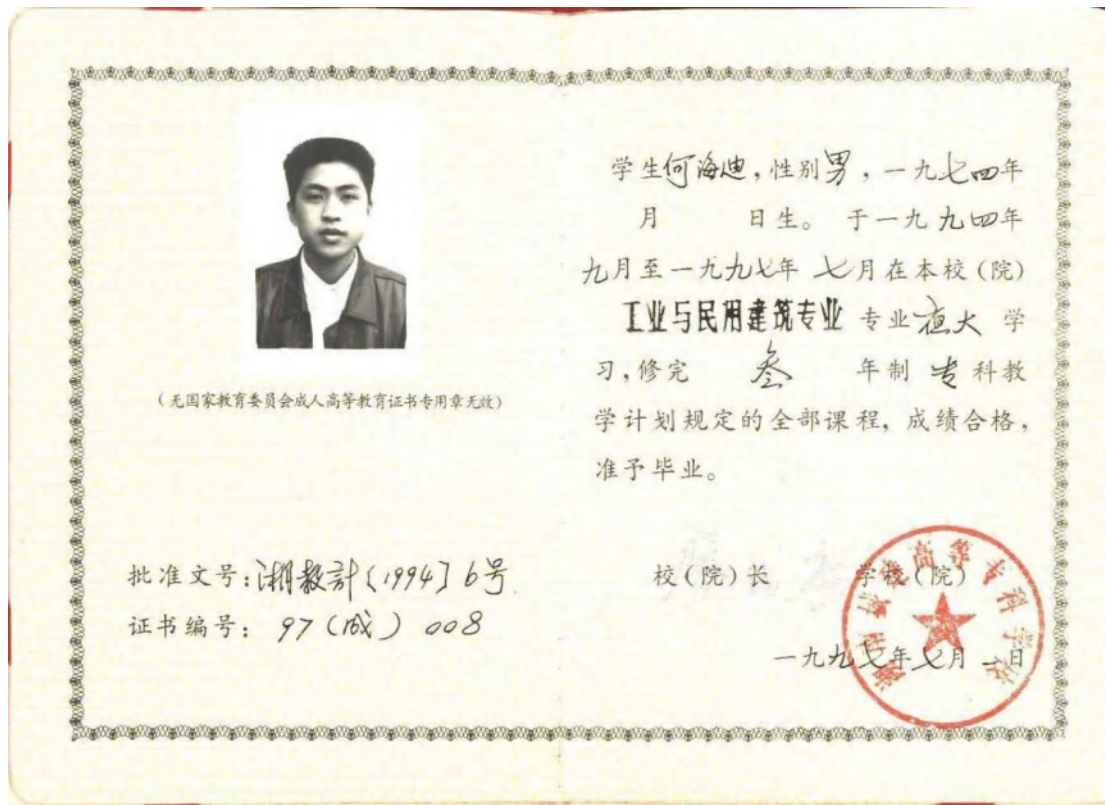 (无国家教育委员会成人高等教育证书专用章无效)
批准文号:湘教計〔1994〕6号
证书编号: 97(成)008
学生何海迪,性别男,一九七四年
月 日生。于一九九四年
九月至一九九七年七月在本校(院)
工业与民用建筑专业 专业夜大 学
习,修完 叁 年制 专科教
学计划规定的全部课程,成绩合格,
准予毕业。
校(院)长 学校(院)
一九九七年七月 日
高等专科学校